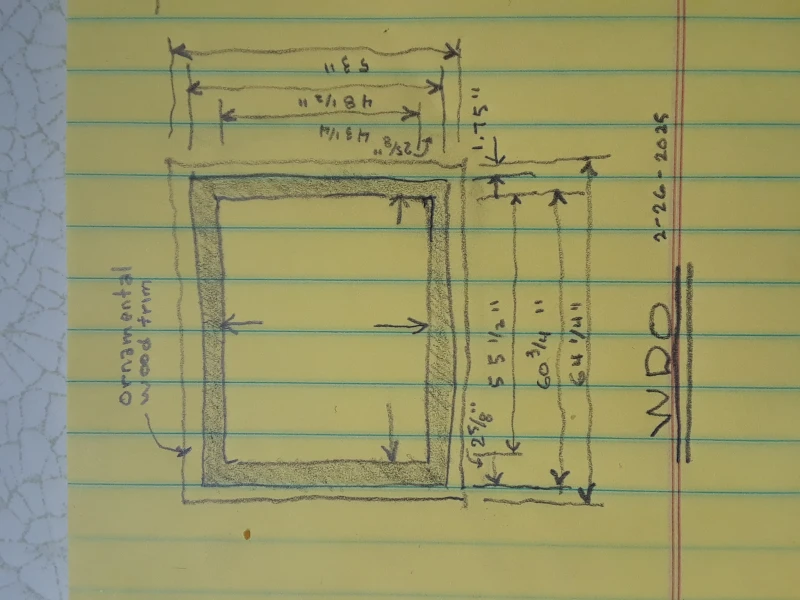 WDO
2-26-2025
53"
48 1/2"
43 1/4
2 5/8"
1.75"
55 1/2"
60 3/4"
64 1/4"
2 5/8"
ornamental
wood trim